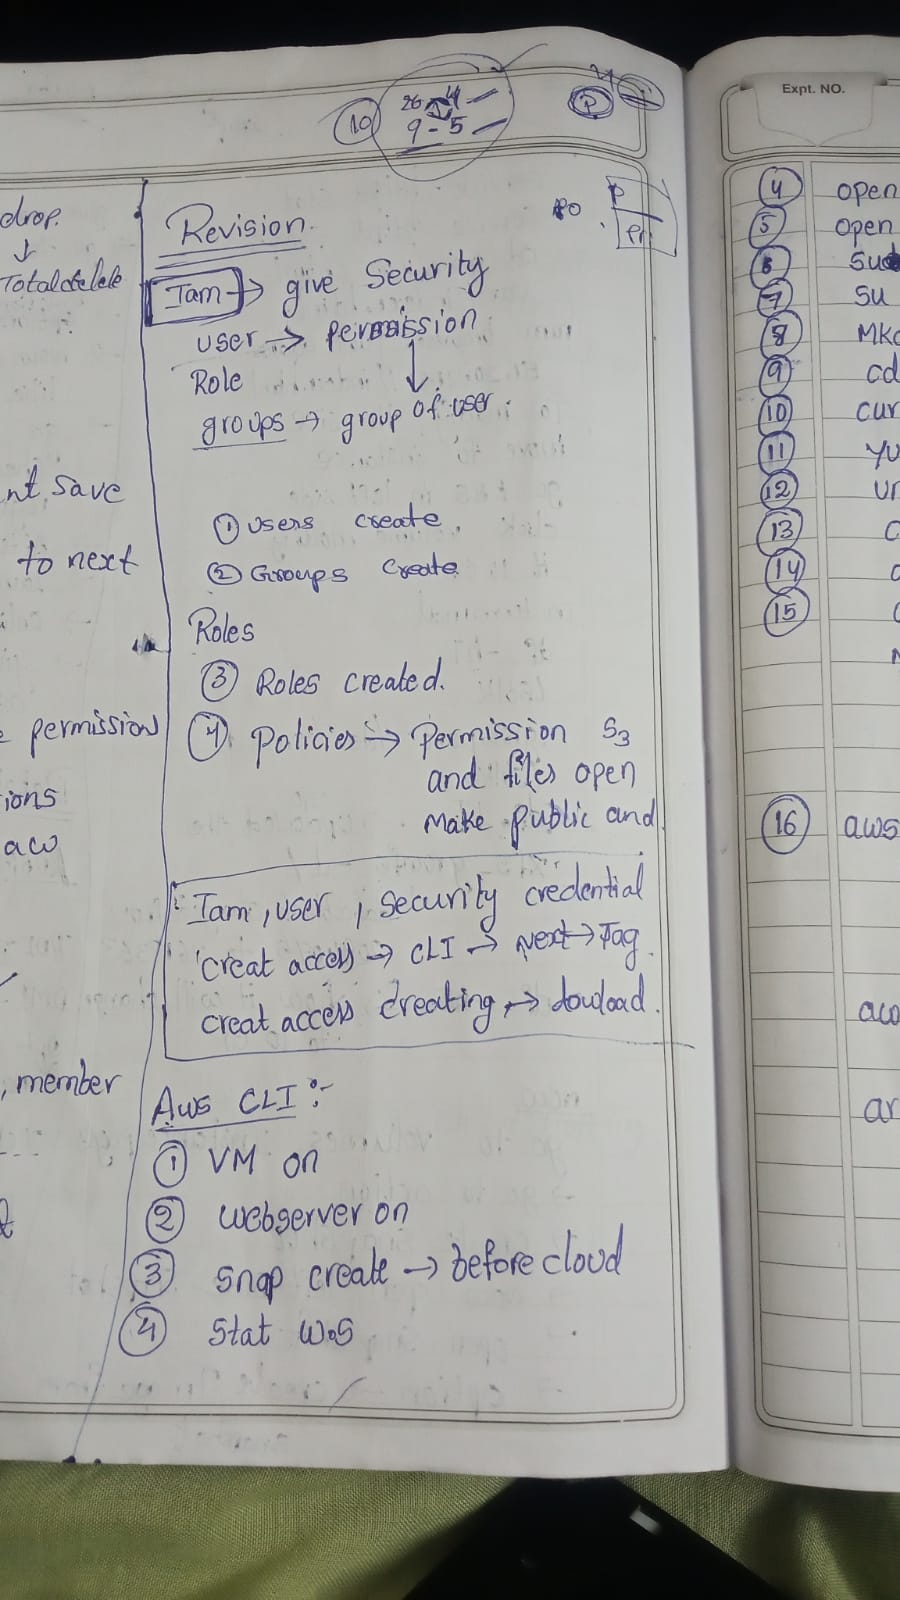 10
26-4
9-5
drop.
↓
Total delete
nt save
to next
permission
ions
aco
, member
Revision
80
P
Pr
Iam → give Security
user → permission
Role
groups → group of user.
① users create
② Groups create
Roles
③ Roles created.
④ policies → Permission S3
and files open
Make public and
Iam, user, security credential
creat access → CLI → Next → Tag
creat access creating → douload.
Aws CLI :-
① VM on
② webserver on
③ snap create → before cloud
④ Stat
Expt. NO.
④ open
⑤ open
⑥
⑦ su
⑧
⑨ cd
⑩ cur
⑪ yu
⑫
⑬
⑭
⑮
⑯ aws
aco
ar